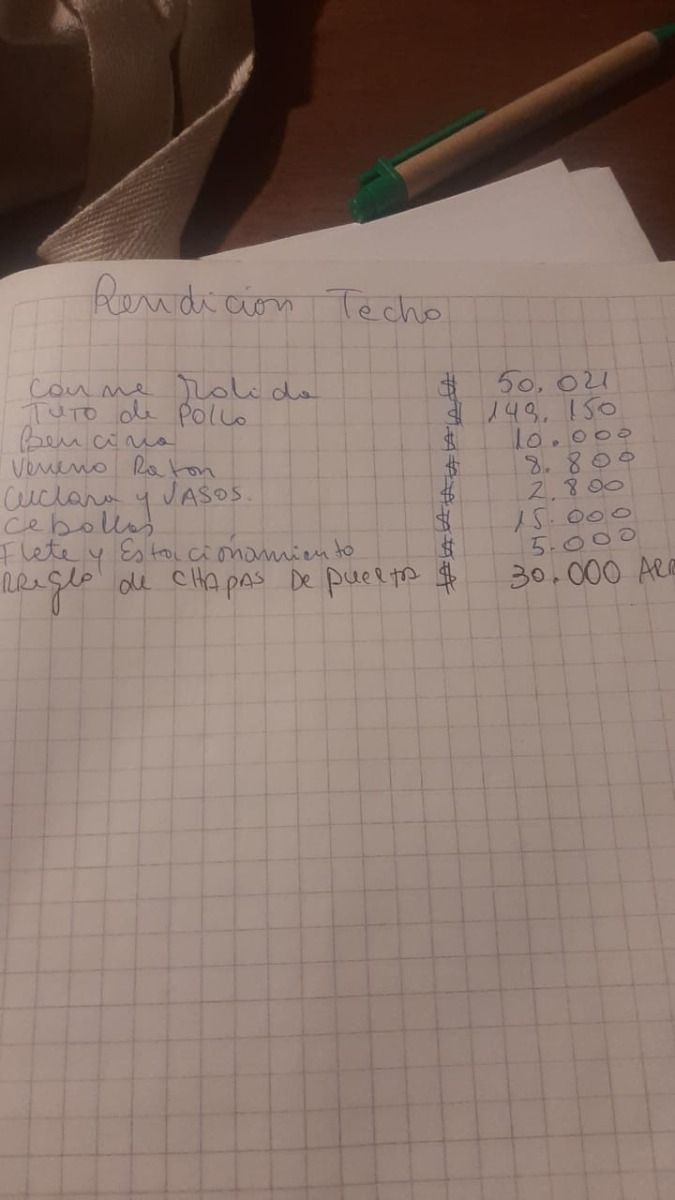 Rendicion Techo
Carne Molida $ 50.021
Tuto de Pollo $ 149.150
Bencina $ 10.000
Veneno Raton $ 8.800
Cuclara y VASOS. $ 2.800
Cebollas $ 15.000
Flete y Estacionamiento $ 5.000
RReglo de CHAPAS De puerta $ 30.000